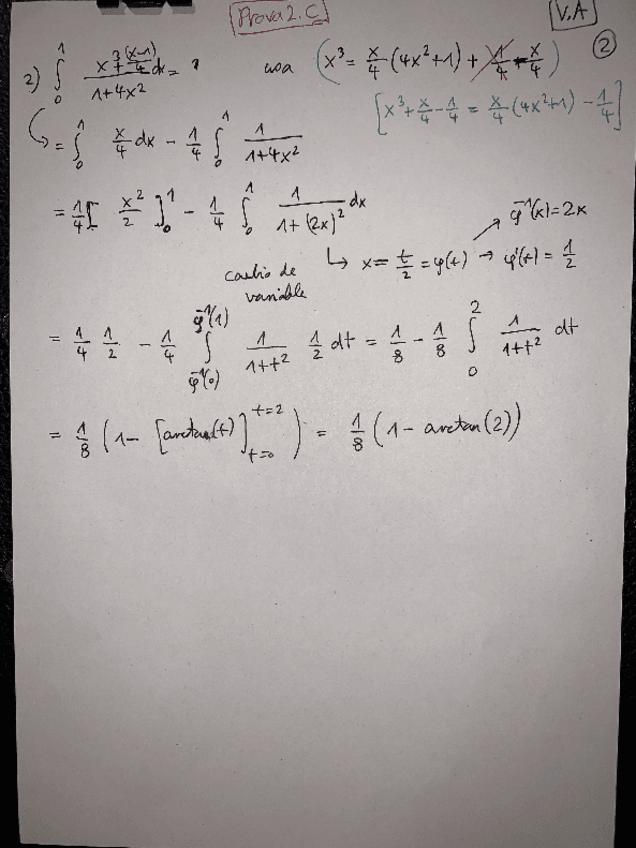 Prova 2. C
V.A
2
2) ∫₀¹ (x³ + (x-1)/4)/(1+4x²) dx = ? usa (x³ = x/4 (4x²+1) - x/4)
[x³ + x/4 - 1/4 = x/4 (4x²+1) - 1/4]
= ∫₀¹ x/4 dx - 1/4 ∫₀¹ 1/(1+4x²)
= 1/4 [x²/2]₀¹ - 1/4 ∫₀¹ 1/(1+(2x)²) dx
φ⁻¹(x) = 2x
↳ x = t/2 = φ(t) → φ'(t) = 1/2
variable
= 1/4 1/2 - 1/4 ∫_{φ⁻¹(0)}^{φ⁻¹(1)} 1/(1+t²) 1/2 dt = 1/8 - 1/8 ∫₀² 1/(1+t²) dt
= 1/8 (1 - [arctan(t)]_{t=0}^{t=2}) = 1/8 (1 - arctan(2))